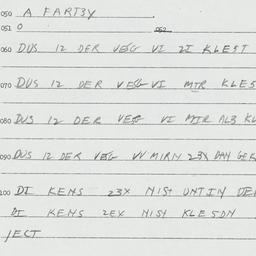 050 A FARTBY
051 0 052
060 DUS 12 DER VEGG VI 2I KLEST
070 DUS 12 DER VEGG VI MTR KLES
080 DUS 12 DER VEGG VI MTR ALB KL
090 DUS 12 DER VEGG VV MIRN 23X DAN GEK
100 DI KENS 23X NIST UNTIN DER
DI KENS 2EX NISH KLESDN
JECT